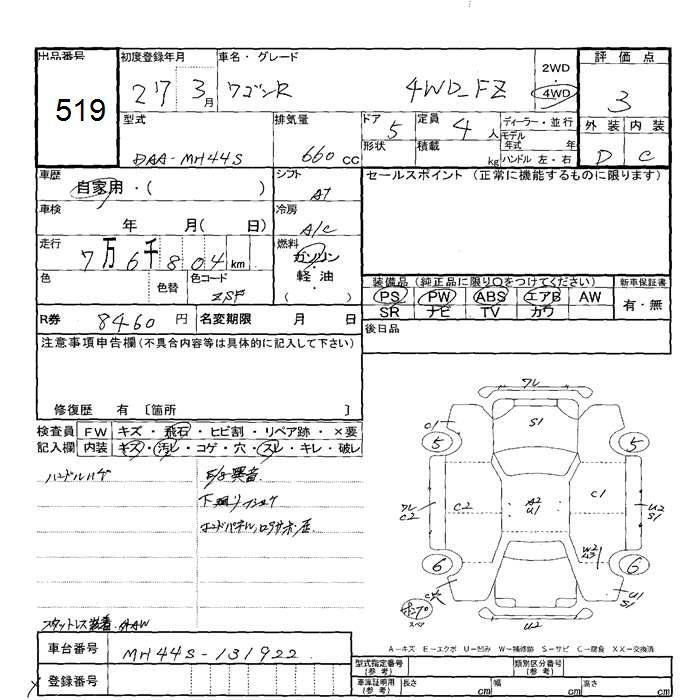 出品番号
519
初度登録年月
27 3月
車名・グレード
ワゴンR 4WD_FZ
2WD
4WD
評価点
3
型式
DAA-MH44S
排気量
660 CC
ドア
5
形状
定員
4人
積載
kg
ディーラー・並行
モデル年式 年
ハンドル 左・右
外装
D
内装
C
車歴
自家用・( )
シフト
AT
車検
年 月( 日)
冷房
A/C
走行
7万6千804km
燃料
ガソリン
軽油
( )
色
色替
色コード
ZSF
セールスポイント(正常に機能するものに限ります)
装備品(純正品に限り○をつけてください)
PS PW ABS エアB AW
SR ナビ TV カワ
新車保証書
有・無
R券
8460円
名変期限 月 日
後日品
注意事項申告欄(不具合内容等は具体的に記入して下さい)
修復歴 有 [箇所 ]
検査員記入欄
FW キズ・飛石・ヒビ割・リペア跡・×要
内装 キズ・汚レ・コゲ・穴・スレ・キレ・破レ
ハンドルハゲ
E/G異音
下廻り
スタットレス装着.
車台番号
MH44S-131922
登録番号
ワレ
S1
C1
5
5
ワレ
C2
C2
A2
U1
C1
U2
S1
W2
6
6
U1
S1
U2
A-キズ E-エクボ U-凹み W-補修跡 S-サビ C-腐食 XX-交換済
型式指定番号
(参考)
類別区分番号
(参考)
車庫証明用
(参考)
長さ cm
幅 cm
高さ cm